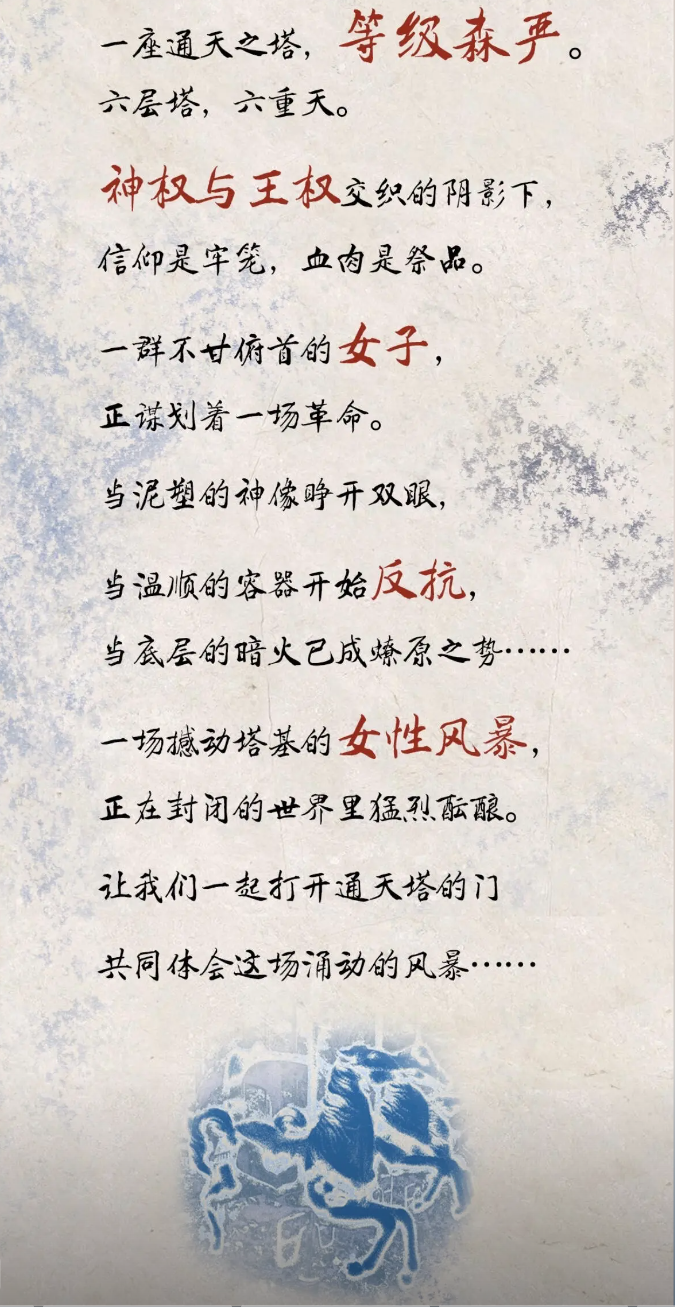 一座通天之塔，等级森严。
六层塔，六重天。
神权与王权交织的阴影下，
信仰是牢笼，血肉是祭品。
一群不甘俯首的女子，
正谋划着一场革命。
当泥塑的神像睁开双眼，
当温顺的容器开始反抗，
当底层的暗火已成燎原之势……
一场撼动塔基的女性风暴，
正在封闭的世界里猛烈酝酿。
让我们一起打开通天塔的门
共同体会这场涌动的风暴……